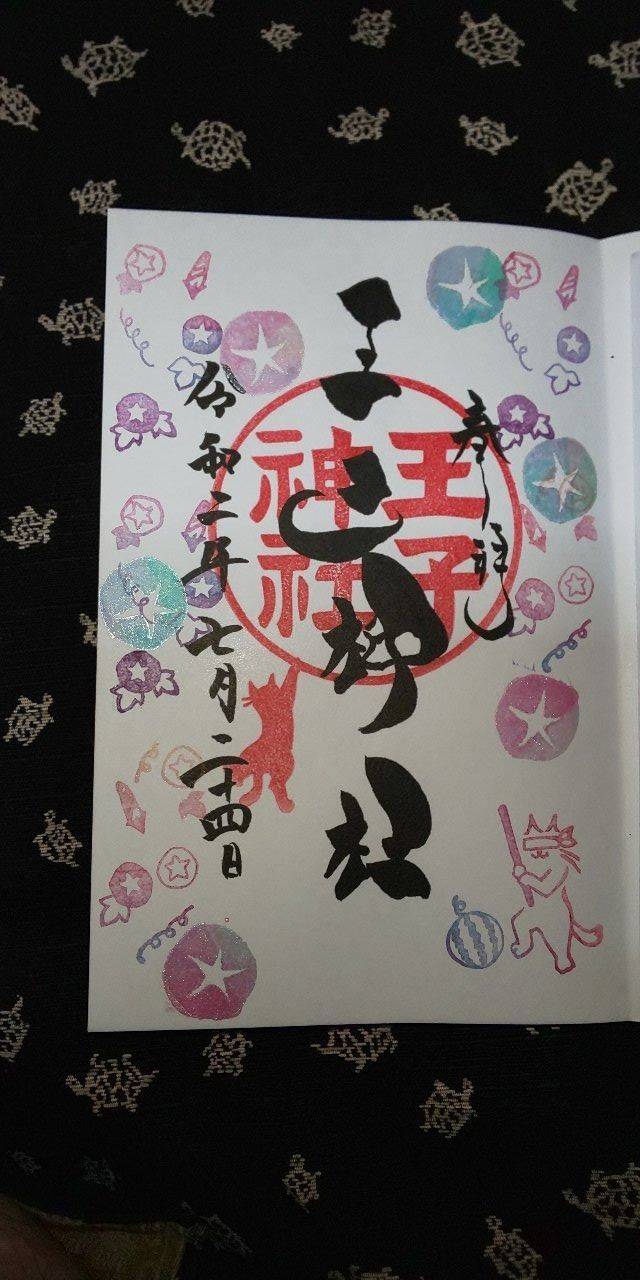 奉拝
王子神社
王子神社
令和二年七月二十四日